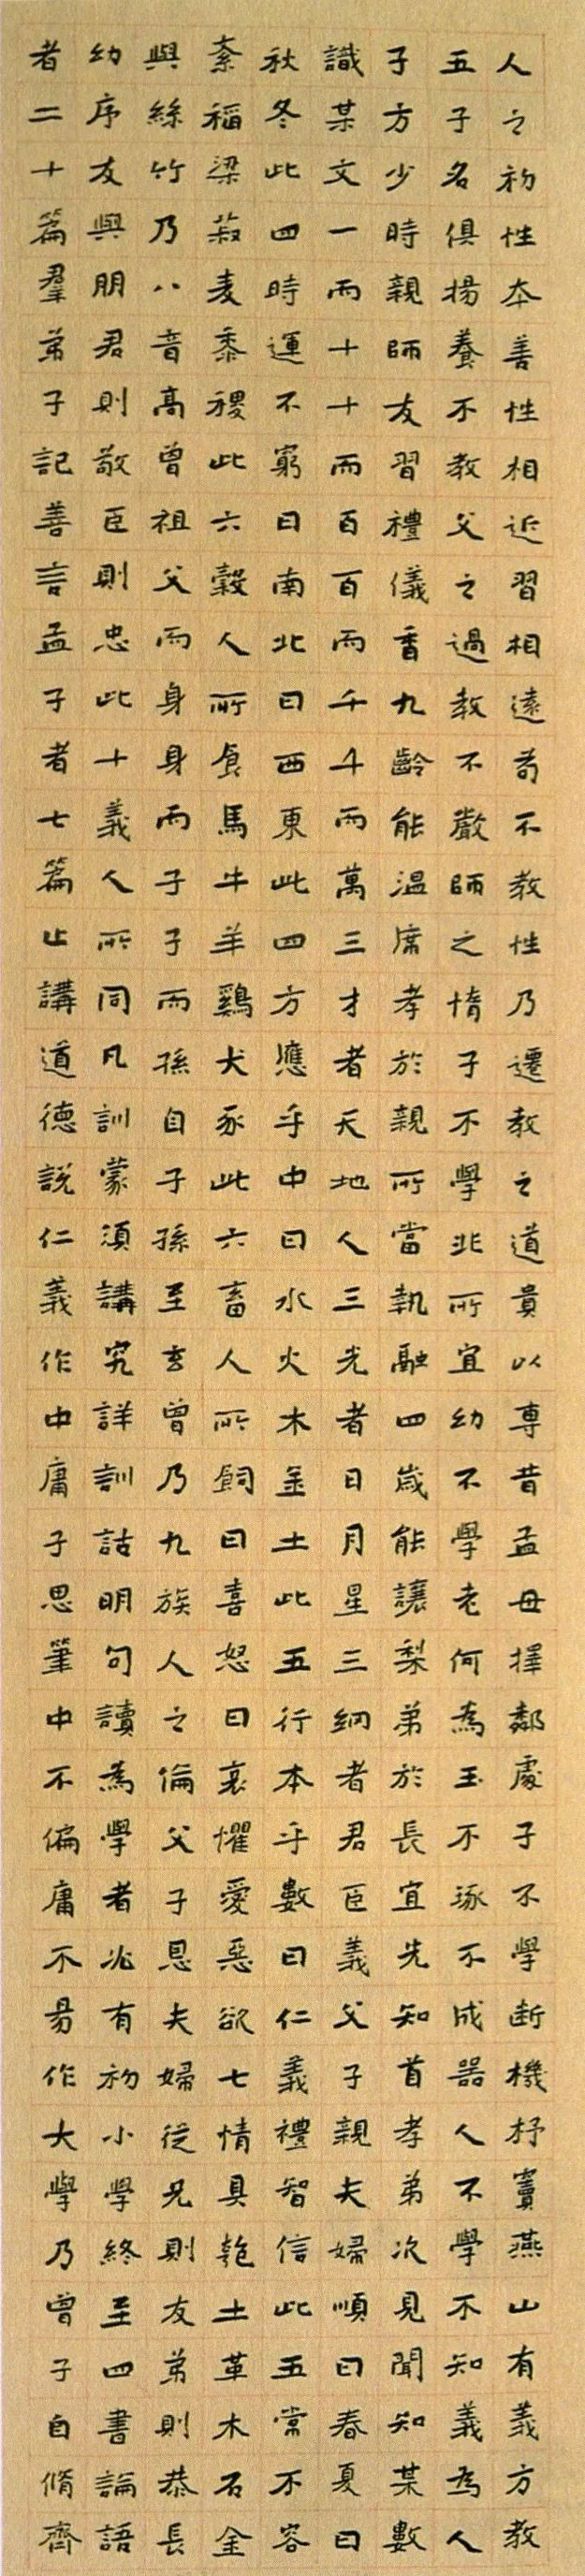 人之初性本善性相近習相遠苟不教性乃遷教之道貴以專昔孟母擇鄰處子不學断機杼竇燕山有義方教
五子名俱揚養不教父之過教不嚴師之惰子不學非所宜幼不學老何為玉不琢不成器人不學不知義為人
子方少時親師友習禮儀香九齡能温席孝於親所當執融四歲能讓梨弟於長宜先知首孝弟次見聞知某數
識某文一而十十而百百而千千而萬三才者天地人三光者日月星三綱者君臣義父子親夫婦順曰春夏曰
秋冬此四時運不窮曰南北曰西東此四方應乎中曰水火木金土此五行本乎數曰仁義禮智信此五常不容
紊稻粱菽麦黍稷此六穀人所食馬牛羊鷄犬豕此六畜人所飼曰喜怒曰哀懼愛惡欲七情具匏土革木石金
與絲竹乃八音高曾祖父而身身而子子而孫自子孫至玄曾乃九族人之倫父子恩夫婦從兄則友弟則恭長
幼序友與朋君則敬臣則忠此十義人所同凡訓蒙須講究詳訓詁明句讀為學者必有初小學終至四書論語
者二十篇羣弟子記善言孟子者七篇止講道德説仁義作中庸子思筆中不偏庸不易作大學乃曾子自脩齊